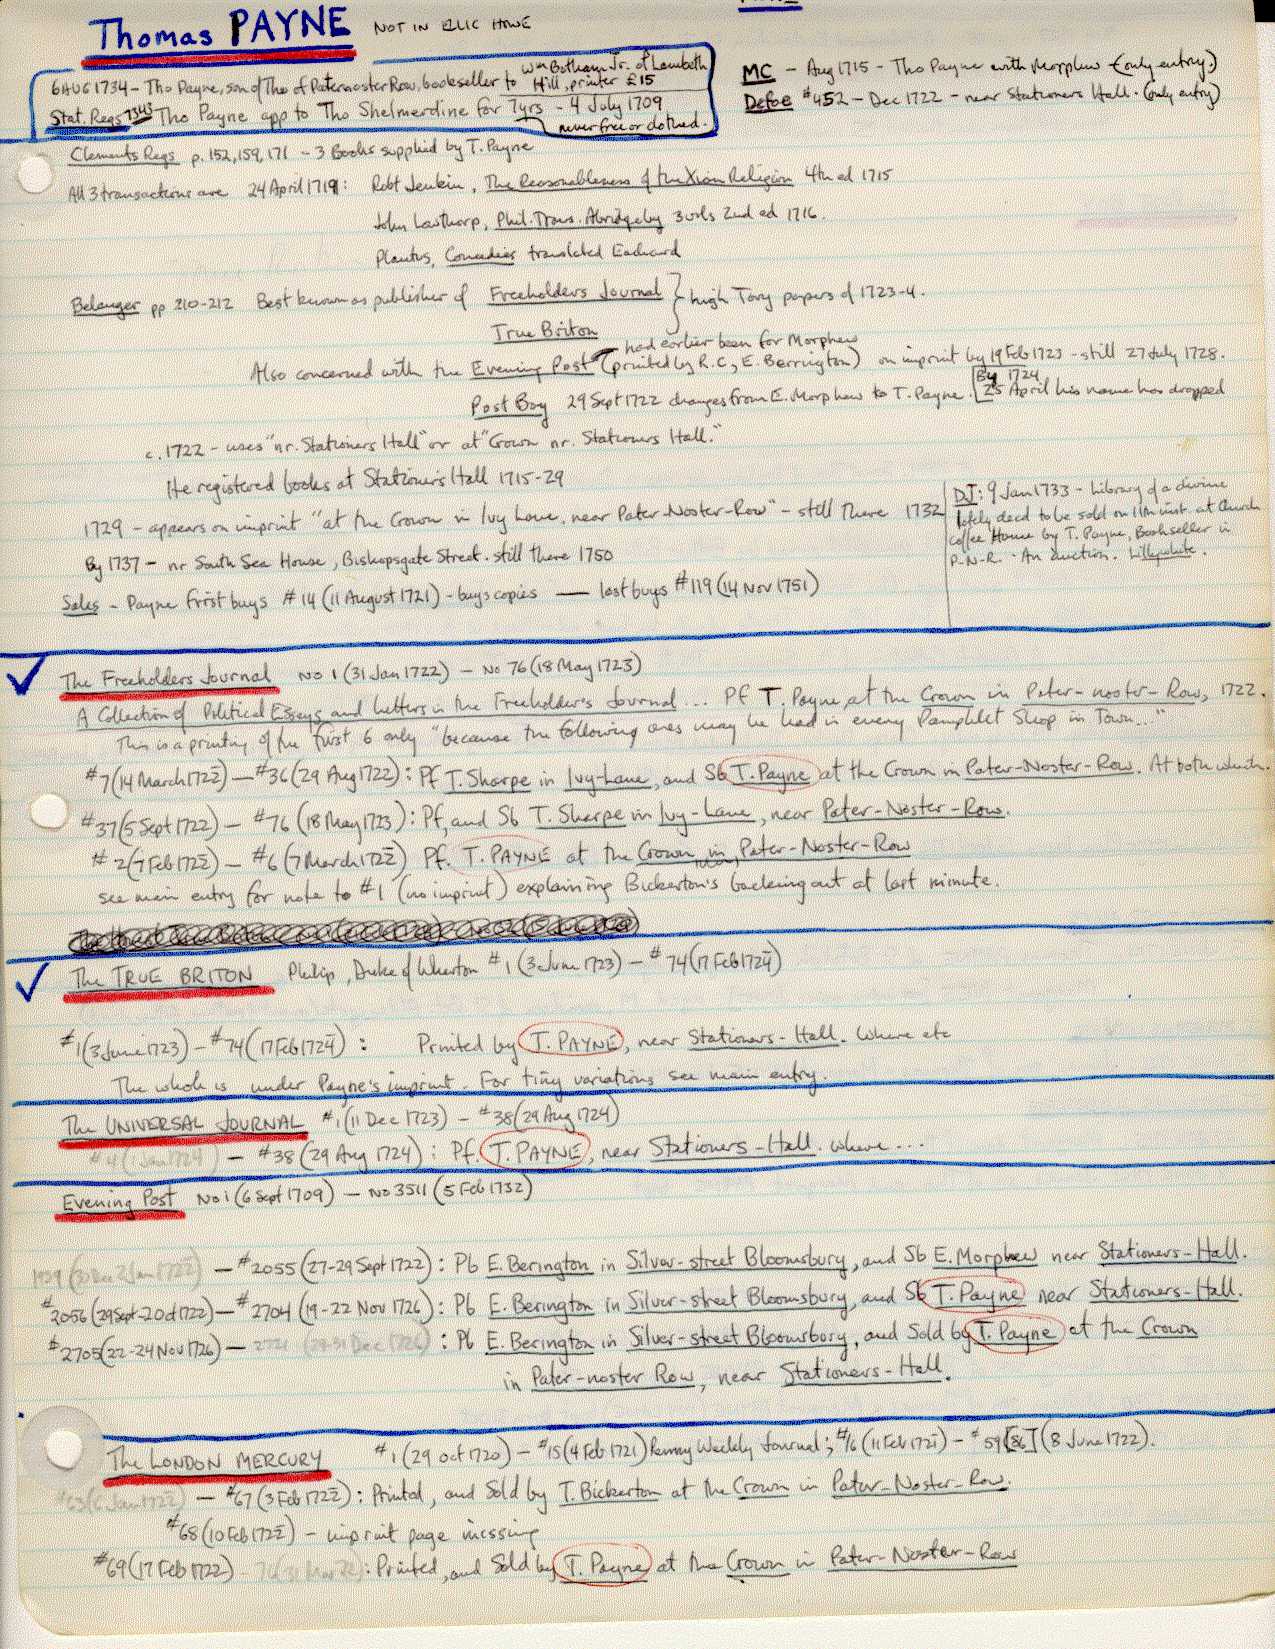 Thomas PAYNE NOT IN ELLIC HOWE
6 AUG 1734 - Tho Payne, son of Tho of Paternoster Row, bookseller to Wm Botham Jr. of Lambeth Hill, printer £15
Stat. Regs 7343 Tho Payne app to Tho Shelmerdine for 7yrs - 4 July 1709
never free or clothed.
MC - Aug 1715 - Tho Payne with Morphew (only entry.)
Defoe #452 - Dec 1722 - near Stationers Hall. (only entry)
Clements Regs p. 152, 159, 171 - 3 Books supplied by T. Payne
All 3 transactions are 24 April 1719: Robt Jenkin, The Reasonableness of the Xian Religion 4th ed 1715
John Lowthorp, Phil. Trans. Abridged by 3 vols 2nd ed 1716.
Plautus, Comedies translated Eachard
Belanger pp 210-212 Best known as publisher of Freeholders Journal } high Tory papers of 1723-4.
True Briton
Also concerned with the Evening Post (had earlier been for Morphew printed by R.C, E. Berrington) on imprint by 19 Feb 1723 - still 27 July 1728.
Post Boy 29 Sept 1722 changes from E. Morphew to T. Payne. [By 1724
25 April his name has dropped
c. 1722 - uses "nr. Stationers Hall" or at "Crown nr. Stationers Hall."
He registered books at Stationers Hall 1715-29
1729 - appears on imprint "at the Crown in Ivy Lane, near Pater-Noster-Row" - still there 1732
By 1737 - nr South Sea House, Bishopsgate Street. still there 1750
DJ: 9 Jan 1733 - Library of a divine
lately decd to be sold on 11th inst at Church
coffee House by T. Payne, Bookseller in
P-N-R. - An auction. Lillywhite.
Sales - Payne first buys #14 (11 August 1721) - buys copies — last buys #119 (14 Nov 1751)
The Freeholders Journal No 1 (31 Jan 1722) - No 76 (18 May 1723)
A Collection of Political Essays and Letters in the Freeholder's Journal... Pf T. Payne, at the Crown in Pater-noster-Row, 1722.
This is a printing of the first 6 only "because the following ones may be had in every Pamphlet Shop in Town..."
#7 (14 March 172½) — #36 (29 Aug 1722): Pf T. Sharpe in Ivy-Lane, and Sb T. Payne at the Crown in Pater-Noster-Row. At both which.
#37 (5 Sept 1722) — #76 (18 May 1723): Pf, and Sb T. Sharpe in Ivy-Lane, near Pater-Noster-Row.
#2 (7 Feb 172½) — #6 (7 March 172½) Pf. T. PAYNE at the Crown in Pater-Noster-Row
see main entry for note to #1 (no imprint) explaining Bickerton's backing out at last minute.
The TRUE BRITON Philip, Duke of Wharton #1 (3 June 1723) — #74 (17 Feb 172¾)
#1 (3 June 1723) — #74 (17 Feb 172¾): Printed by T. PAYNE, near Stationers-Hall. Where etc
The whole is under Payne's imprint. For tiny variations see main entry.
The UNIVERSAL JOURNAL #1 (11 Dec 1723) — #38 (29 Aug 1724)
#4 (1 Jan 1724) — #38 (29 Aug 1724): Pf. T. PAYNE, near Stationers-Hall. where...
Evening Post No 1 (6 Sept 1709) — No 3511 (5 Feb 1732)
— #2055 (27-29 Sept 1722): Pb E. Berington in Silver-street Bloomsbury, and Sb E. Morphew near Stationers-Hall.
#2056 (29 Sept-2 Oct 1722) — #2704 (19-22 Nov 1726): Pb E. Berington in Silver-street Bloomsbury, and Sb T. Payne near Stationers-Hall.
#2705 (22-24 Nov 1726) — 2721 (29-31 Dec 1726): Pb E. Berington in Silver-street Bloomsbury, and Sold by T. Payne at the Crown
in Pater-noster Row, near Stationers-Hall.
The LONDON MERCURY #1 (29 Oct 1720) — #15 (4 Feb 1721) Penny Weekly Journal; #16 (11 Feb 1721) — #59 [86] (8 June 1722).
#63 (6 Jan 172½) — #67 (3 Feb 172½): Printed, and Sold by T. Bickerton at the Crown in Pater-Noster-Row.
#68 (10 Feb 172½) - imprint page missing
#69 (17 Feb 1722) - : Printed, and Sold by T. Payne at the Crown in Pater-Noster-Row